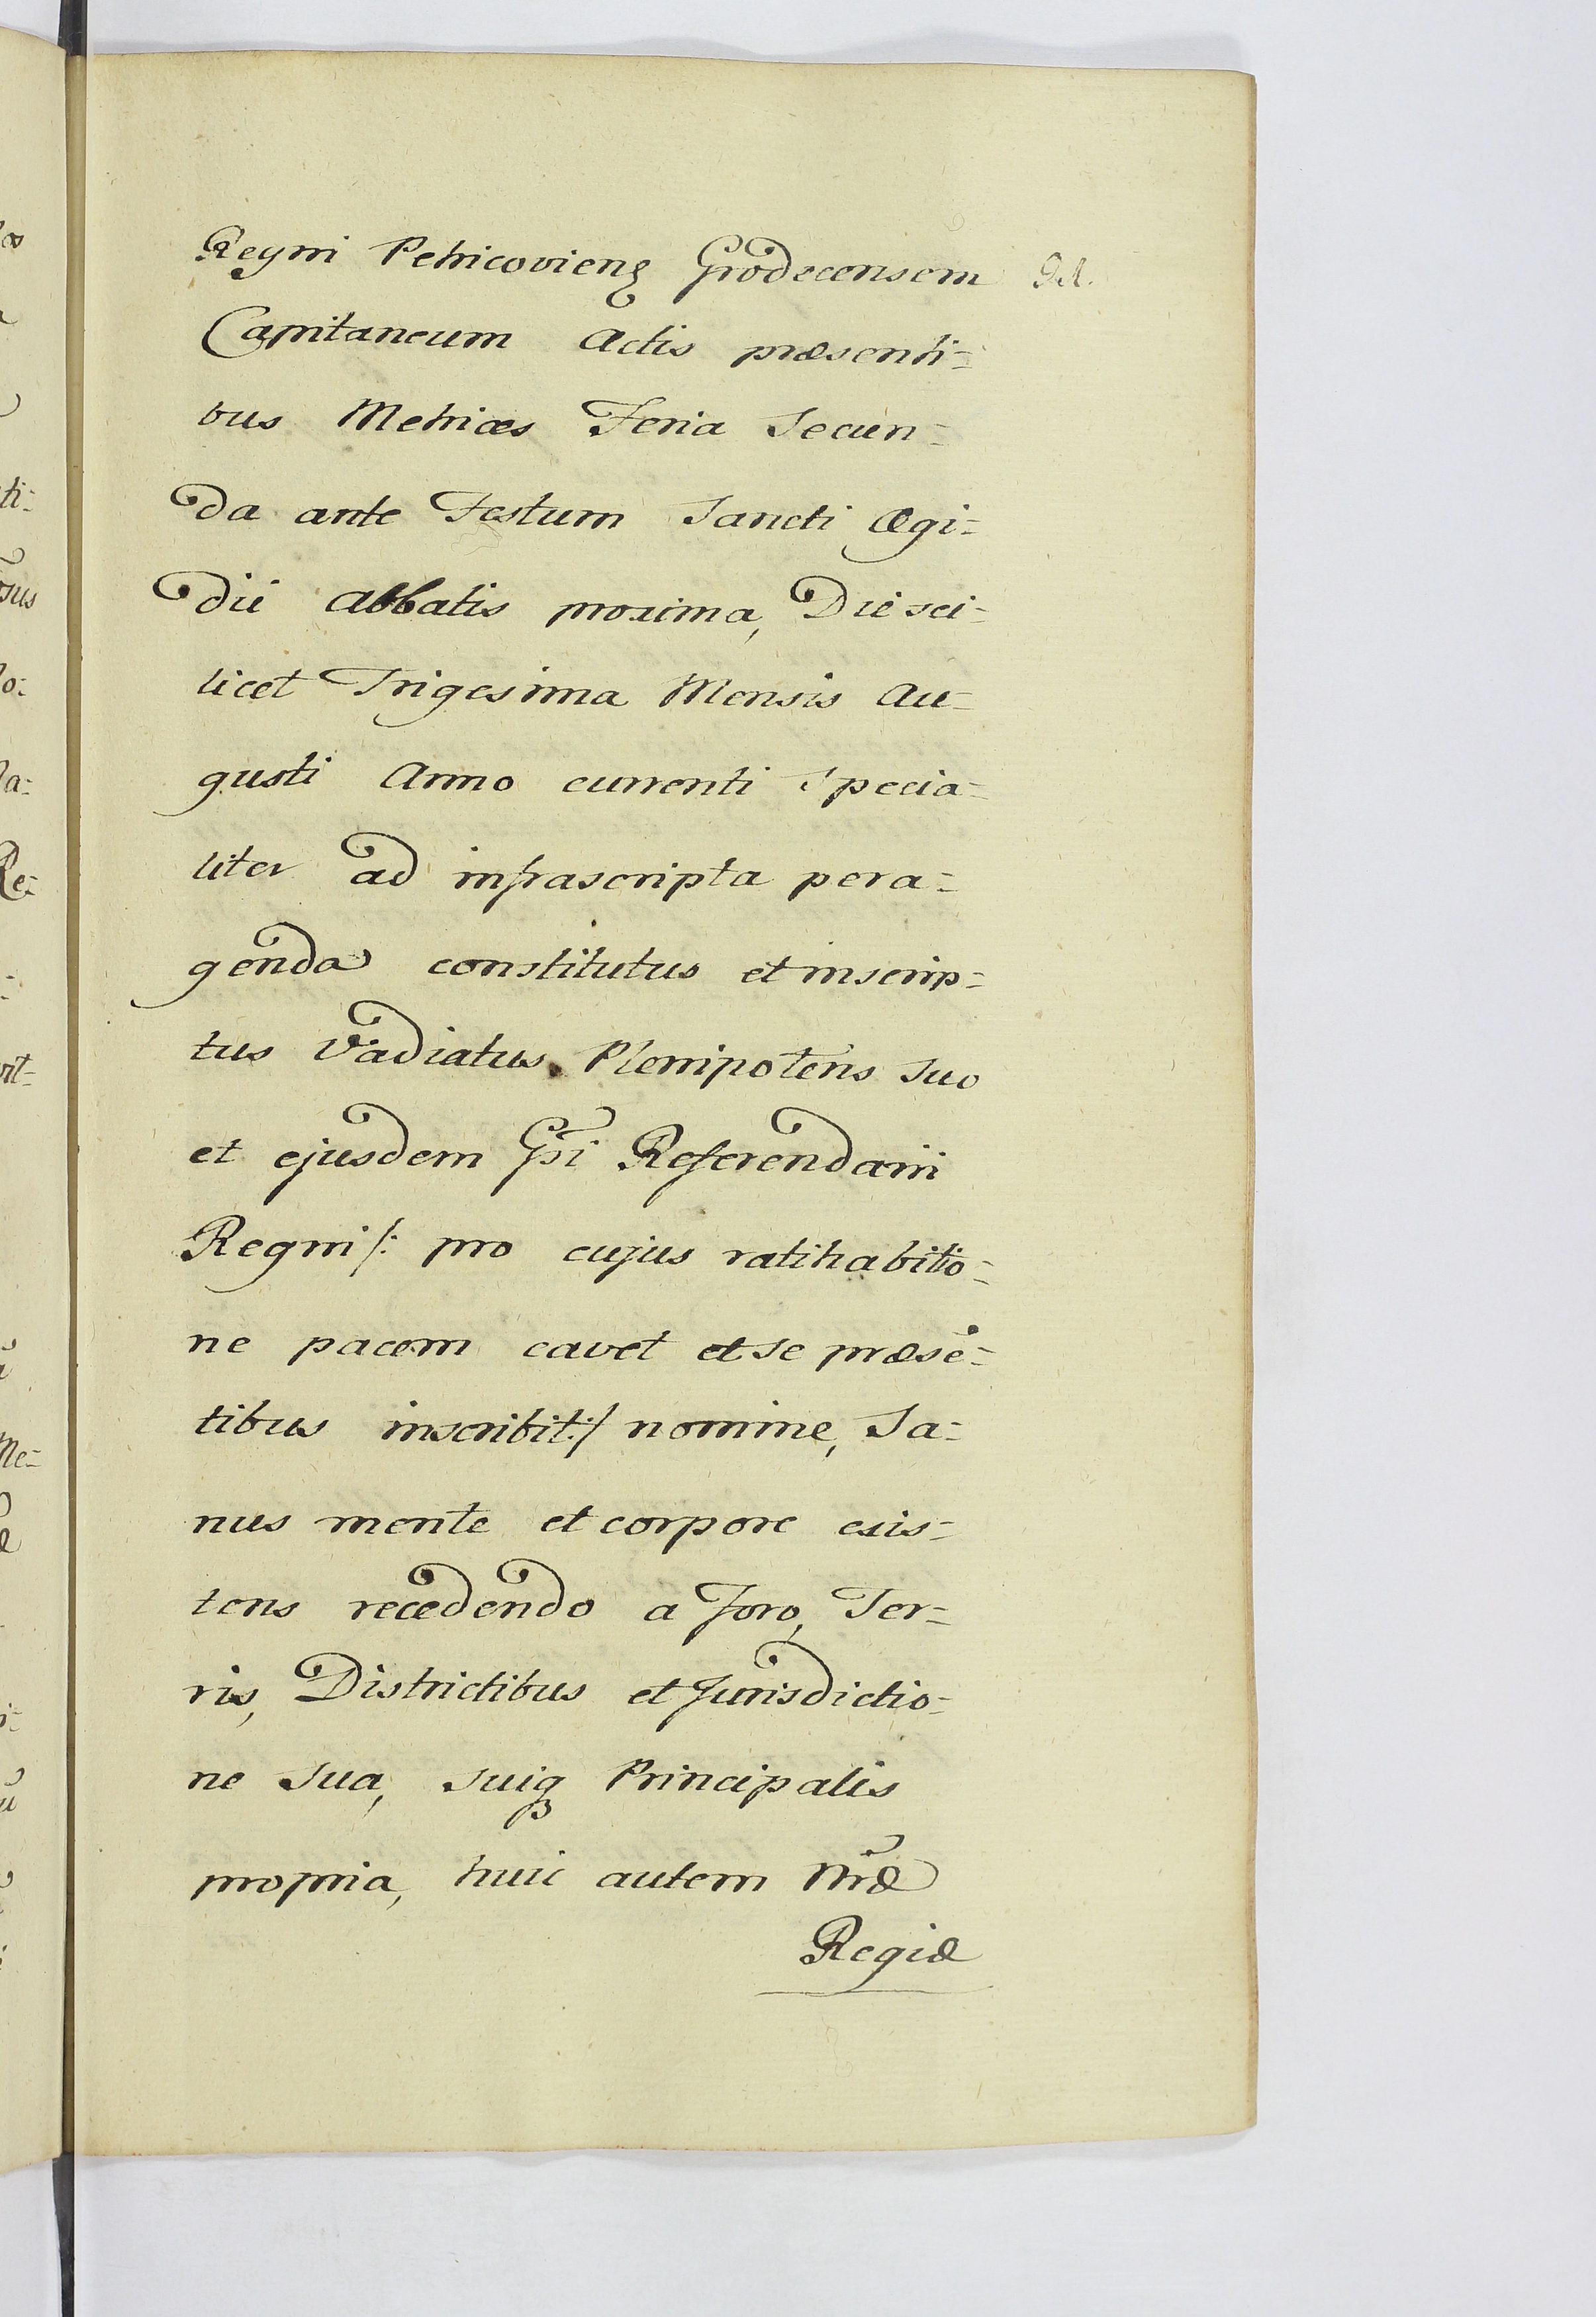 Regni Petricovienę Grodecensem
Capitaneum Actis præsenti=
bus Metrices Feria Secun=
da ante Festum Sancti Ægi=
dii Abbatis proxima, Die sci=
licet Trigesima Mensis Au=
gusti Anno currenti Specia=
liter ad infrascripta pera=
genda constitutus et inscrip=
tus Vadiatus Plenipotens suo
et ejusdem Gsi Referendarii
Regni /: pro cujus ratihabitio=
ne pacem cavet et se præsē=
tibus inscribit :/ nomine, Sa=
nus mente et corpore exis=
tens recedendo a Foro, Ter=
ris, Districtibus et Jurisdictio=
ne Sua, suiqꝫ Principalis
propria, huic autem Mræ
Regiæ